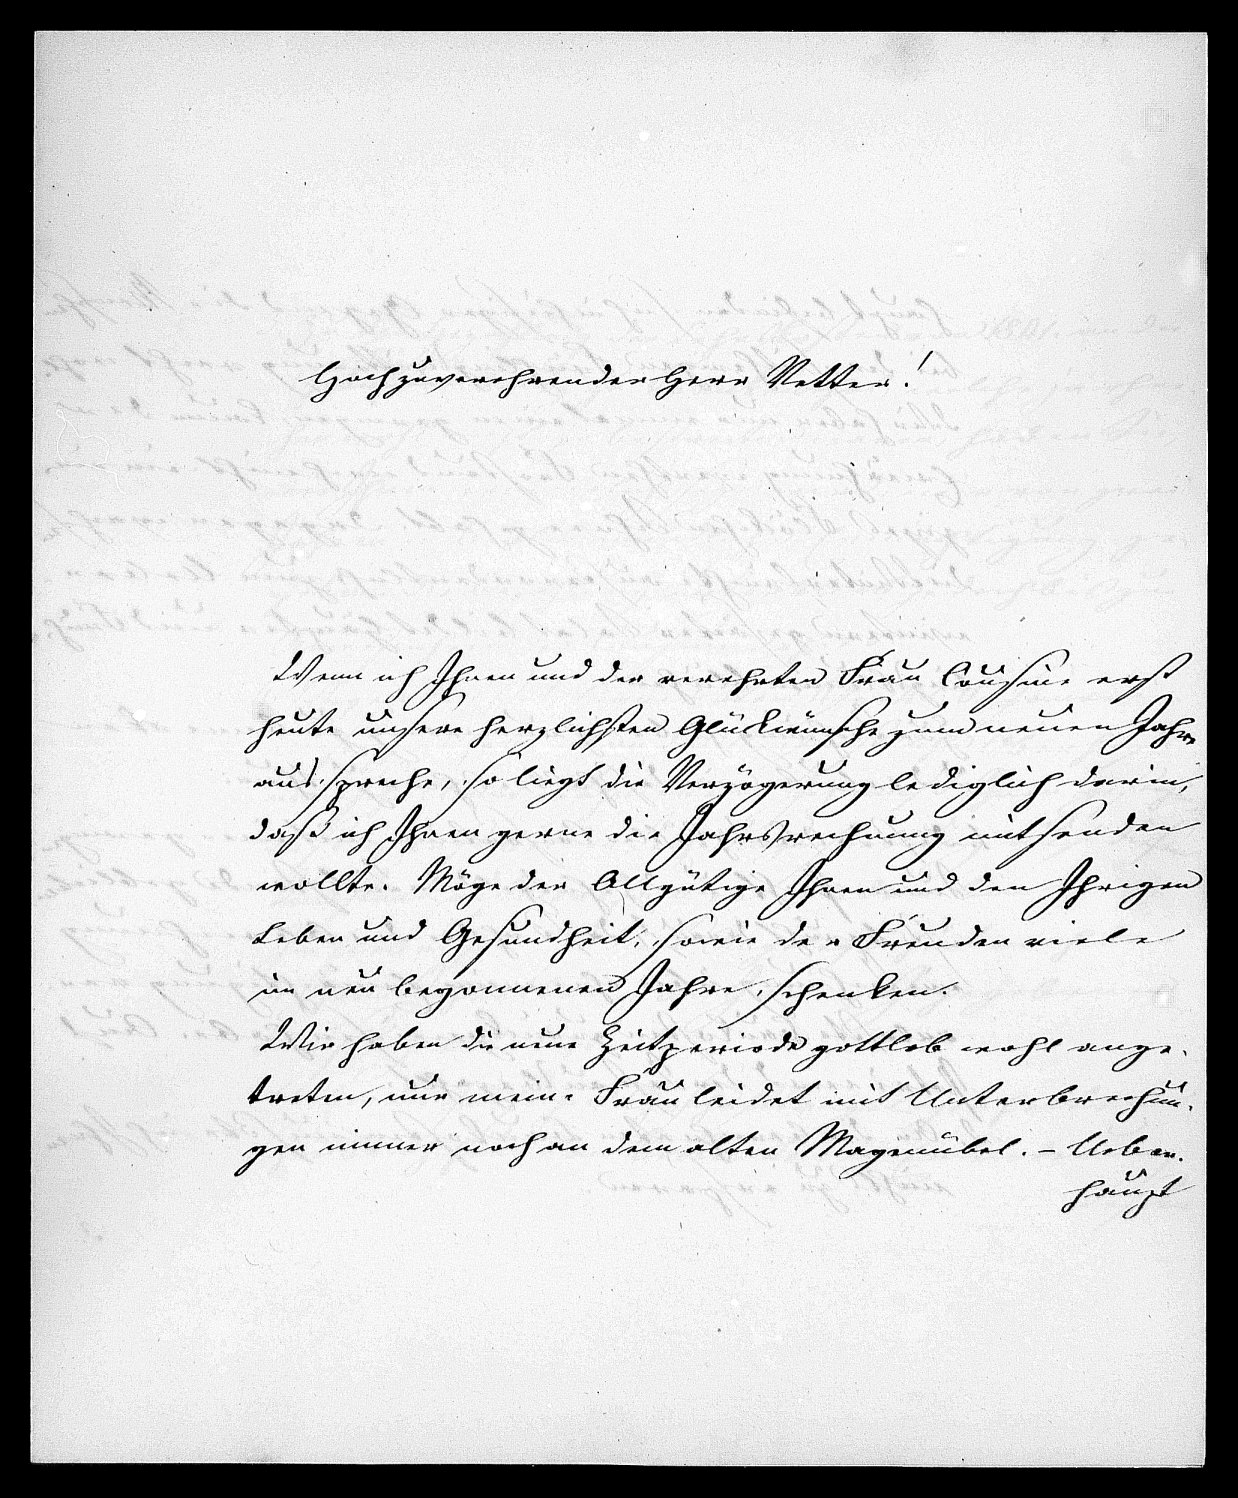 Hochzuverehrender Herr Vetter!
Wenn ich Ihnen und der verehrten Frau Cousine erst
heute unsere herzlichsten Glückwünsche zum neuen Jahre
ausspreche, so liegt die Verzögerung lediglich darin,
daß ich Ihnen gerne die Jahrsrechnung mitsenden
wollte. Möge der Allgütige Ihnen und den Ihrigen
Leben und Gesundheit, sowie der Freuden viele
im neu begonnenen Jahre schenken.
Wir haben die neue Zeitperiode gottlob wohl ange-
treten, nur meine Frau leidet mit Unterbrechun-
gen immer noch an dem alten Magenübel. – Ueber-
haupt